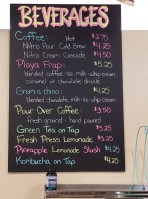 BEVERAGES
Coffee: Hot $2.75
Nitro Pour Cold Brew $4.25
Nitro Cream Cascade $4.50
Playa Frap: $5.25
blended coffee, ice, milk, whip cream
caramel or chocolate drizzle
Gram-a-china: $4.25
blended chocolate milk, ice, whip cream
Pour Over Coffee $3.50
fresh ground - hand poured
Green Tea on Tap $3.25
Fresh Press Lemonade $3.25
Pineapple Lemonade Slush $4.25
Kombucha on Tap $4.25